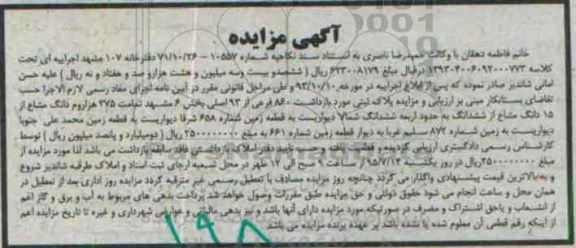 آگهی مزایده
خانم فاطمه دهقان با وکالت حمیدرضا ناصری به استناد سند نکاحیه شماره ۱۰۵۵۷ - ۷۱/۱۰/۲۶ دفترخانه ۱۰۷ مشهد اجراییه ای تحت
کلاسه ۱۳۹۳۰۴۰۰۶۰۹۲۰۰۰۷۷۳ درقبال مبلغ ۶۲۳۰۰۸۱۷۹ ریال ( ششصدو بیست وسه میلیون و هشت هزارو صد و هفتاد و نه ریال ) علیه حسن
امانی شاندیز صادر نموده که پس از ابلاغ اجراییه در مورخه ۹۳/۱۰/۱۰ و طی مراحل قانونی مقرر در آیین نامه اجرای مفاد رسمی لازم الاجرا حسب
تقاضای بستانکار مبنی بر ارزیابی و مزایده پلاک ثبتی مورد بازداشت ۸۶۰ فرعی از ۹۳ اصلی بخش ۶ مشهد تمامت ۳۷۵ هزاروم دانگ مشاع از
۱۵ دانگ مشاع از ششدانگ به حدود اربعه ششدانگ شمالا دیواریست به قطعه زمین شماره ۶۵۸ شرقا دیواریست به قطعه زمین محمد علی جنوبا
دیواریست به زمین شماره ۸۷۲ مسلم غربا به دیوار قطعه زمین شماره ۶۶۱ به مبلغ ۲۵۰۰۰۰۰۰۰۰ ریال (دومیلیارد و پانصد میلیون ریال ) توسط
کارشناس رسمی دادگستری ارزیابی گردیده و قطعیت یافته و حسب تایید دفتر املاک بازداشتی فاقد سابقه بازداشت می باشد لذا مورد مزایده از
مبلغ ۲۵۰۰۰۰۰۰۰۰ ریال در روز یکشنبه ۹۵/۷/۱۴ از ساعت ۹ صبح الی ۱۲ ظهر در محل شعبه اجرای ثبت اسناد و املاک طرقبه شاندیز شروع
و به بالاترین قیمت پیشنهادی واگذار می گردد چنانچه روز مزایده مصادف با تعطیل رسمی غیر مترقبه گردد مزایده روز اداری بعد از تعطیل در
همان محل و ساعت انجام می شود حقوق دولتی و حق مزایده طبق مقررات وصول خواهد شد پرداخت بدهی های مربوط به آب و برق و گاز اعم
از انشعاب و یاحق اشتراک و مصرف در صورتیکه مورد مزایده دارای آنها باشد و نیز بدهی مالیاتی و عوارض شهرداری و غیره تا تاریخ مزایده اعم
از اینکه رقم قطعی آن معلوم شده یا نشده باشد بر عهده برنده مزایده می باشد
۱۹۸